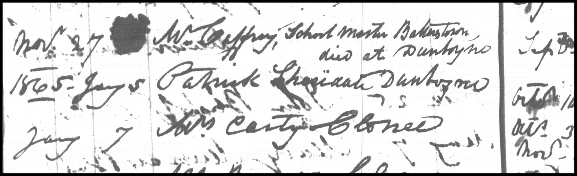 Novr. 27 Mr Caffrey, School Master Batterstown,
died at Dunboyne
1865. Jany 5 Patrick Sheridan Dunboyne
Jany 7 Mrs Carty Clonee
Sept
Octr. 10
Octr. 3
Novr.